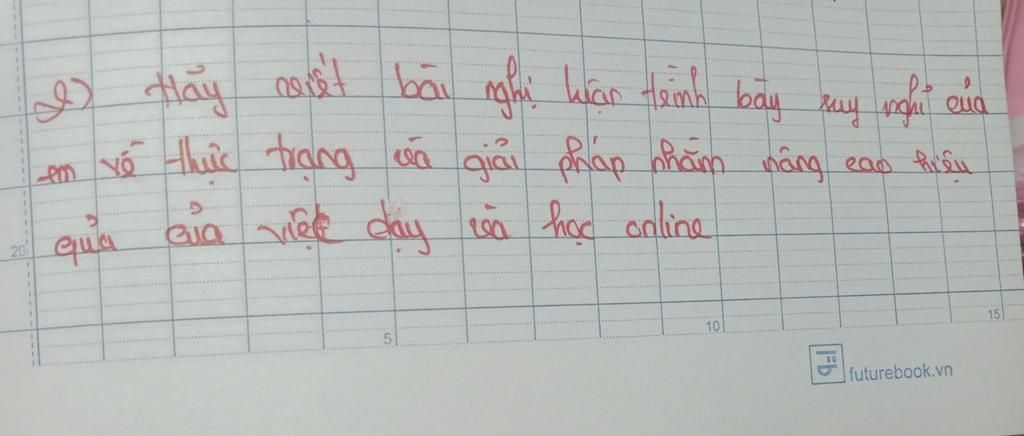 2) Hãy viết bài nghị luận trình bày suy nghĩ của
em về thực trạng và giải pháp nhằm nâng cao hiệu
quả của việc dạy và học online
20
5
10
15
futurebook.vn